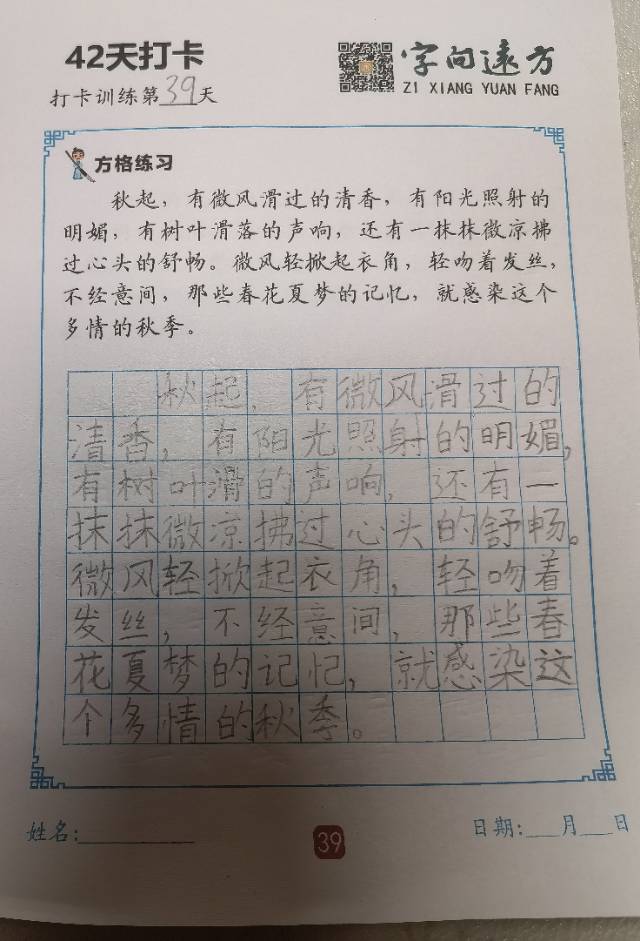 42天打卡
打卡训练第39天
字向远方
ZI XIANG YUAN FANG
方格练习
秋起，有微风滑过的清香，有阳光照射的
明媚，有树叶滑落的声响，还有一抹抹微凉拂
过心头的舒畅。微风轻掀起衣角，轻吻着发丝，
不经意间，那些春花夏梦的记忆，就感染这个
多情的秋季。
秋起，有微风滑过的
清香，有阳光照射的明媚，
有树叶滑的声响，还有一
抹抹微凉拂过心头的舒畅。
微风轻掀起衣角，轻吻着
发丝，不经意间，那些春
花夏梦的记忆，就感染这
个多情的秋季。
姓名:
39
日期:___月___日